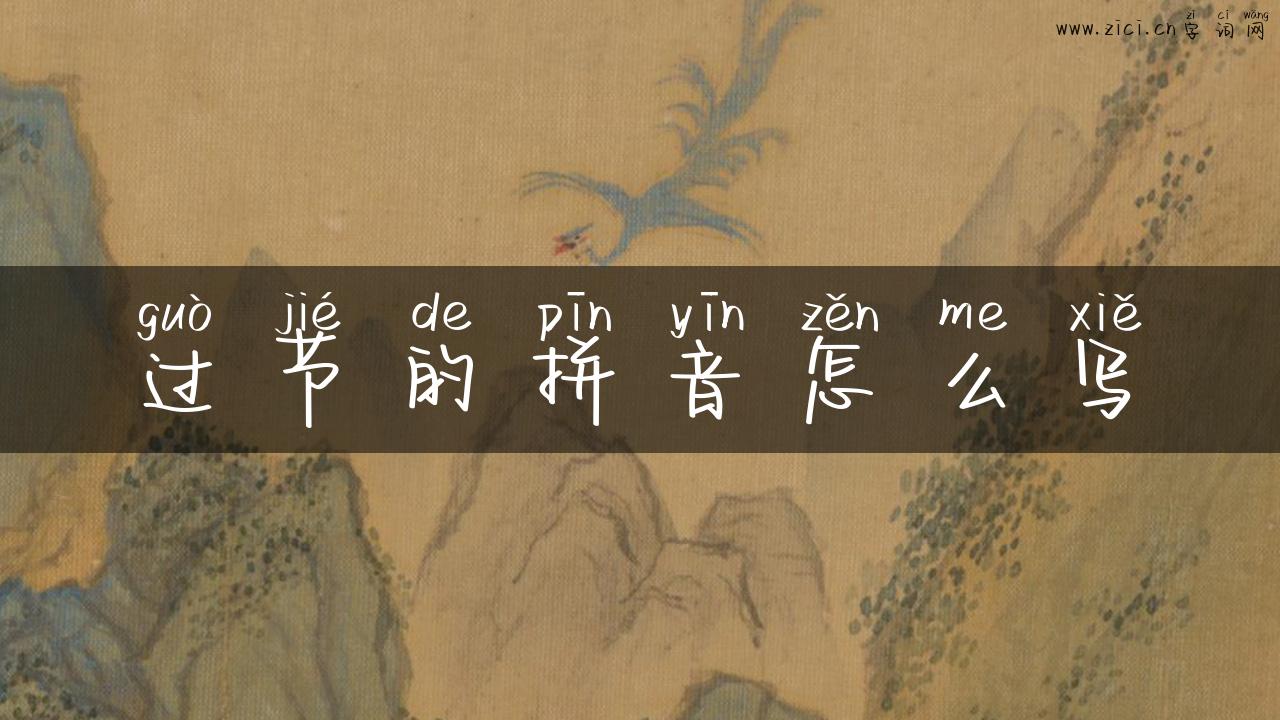 zì cí wǎng
www.zici.cn字词网
guò jié de pīn yīn zěn me xiě
过节的拼音怎么写